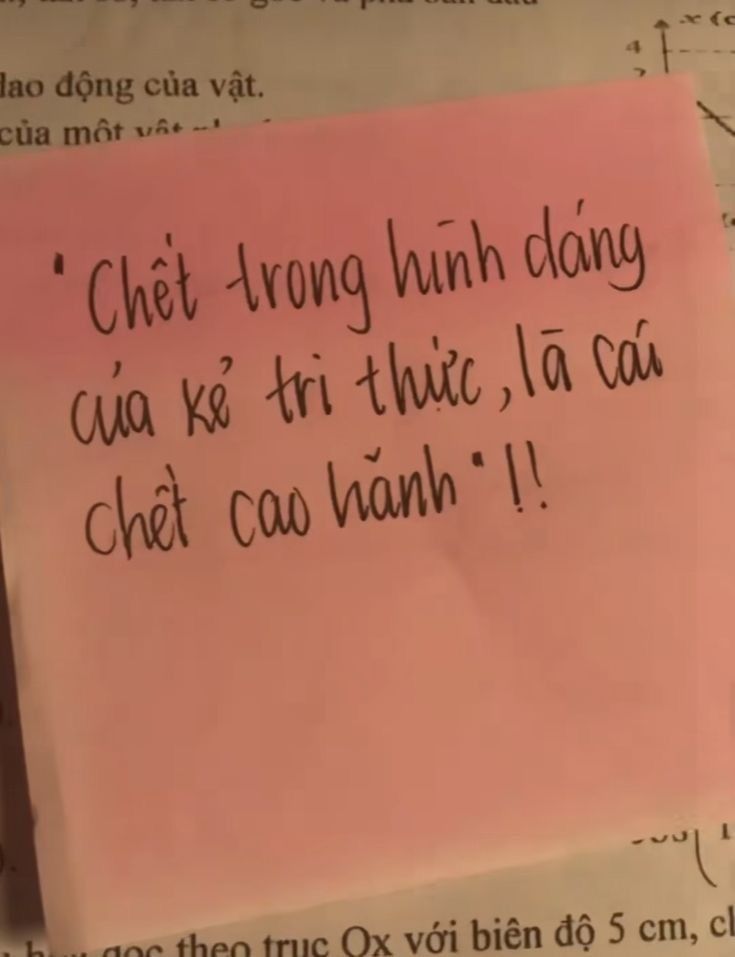 dao động của vật.
của một vật
"Chết trong hình dáng
của kẻ tri thức, là cái
chết cao hãnh"!!
theo trục Ox với biên độ 5 cm,